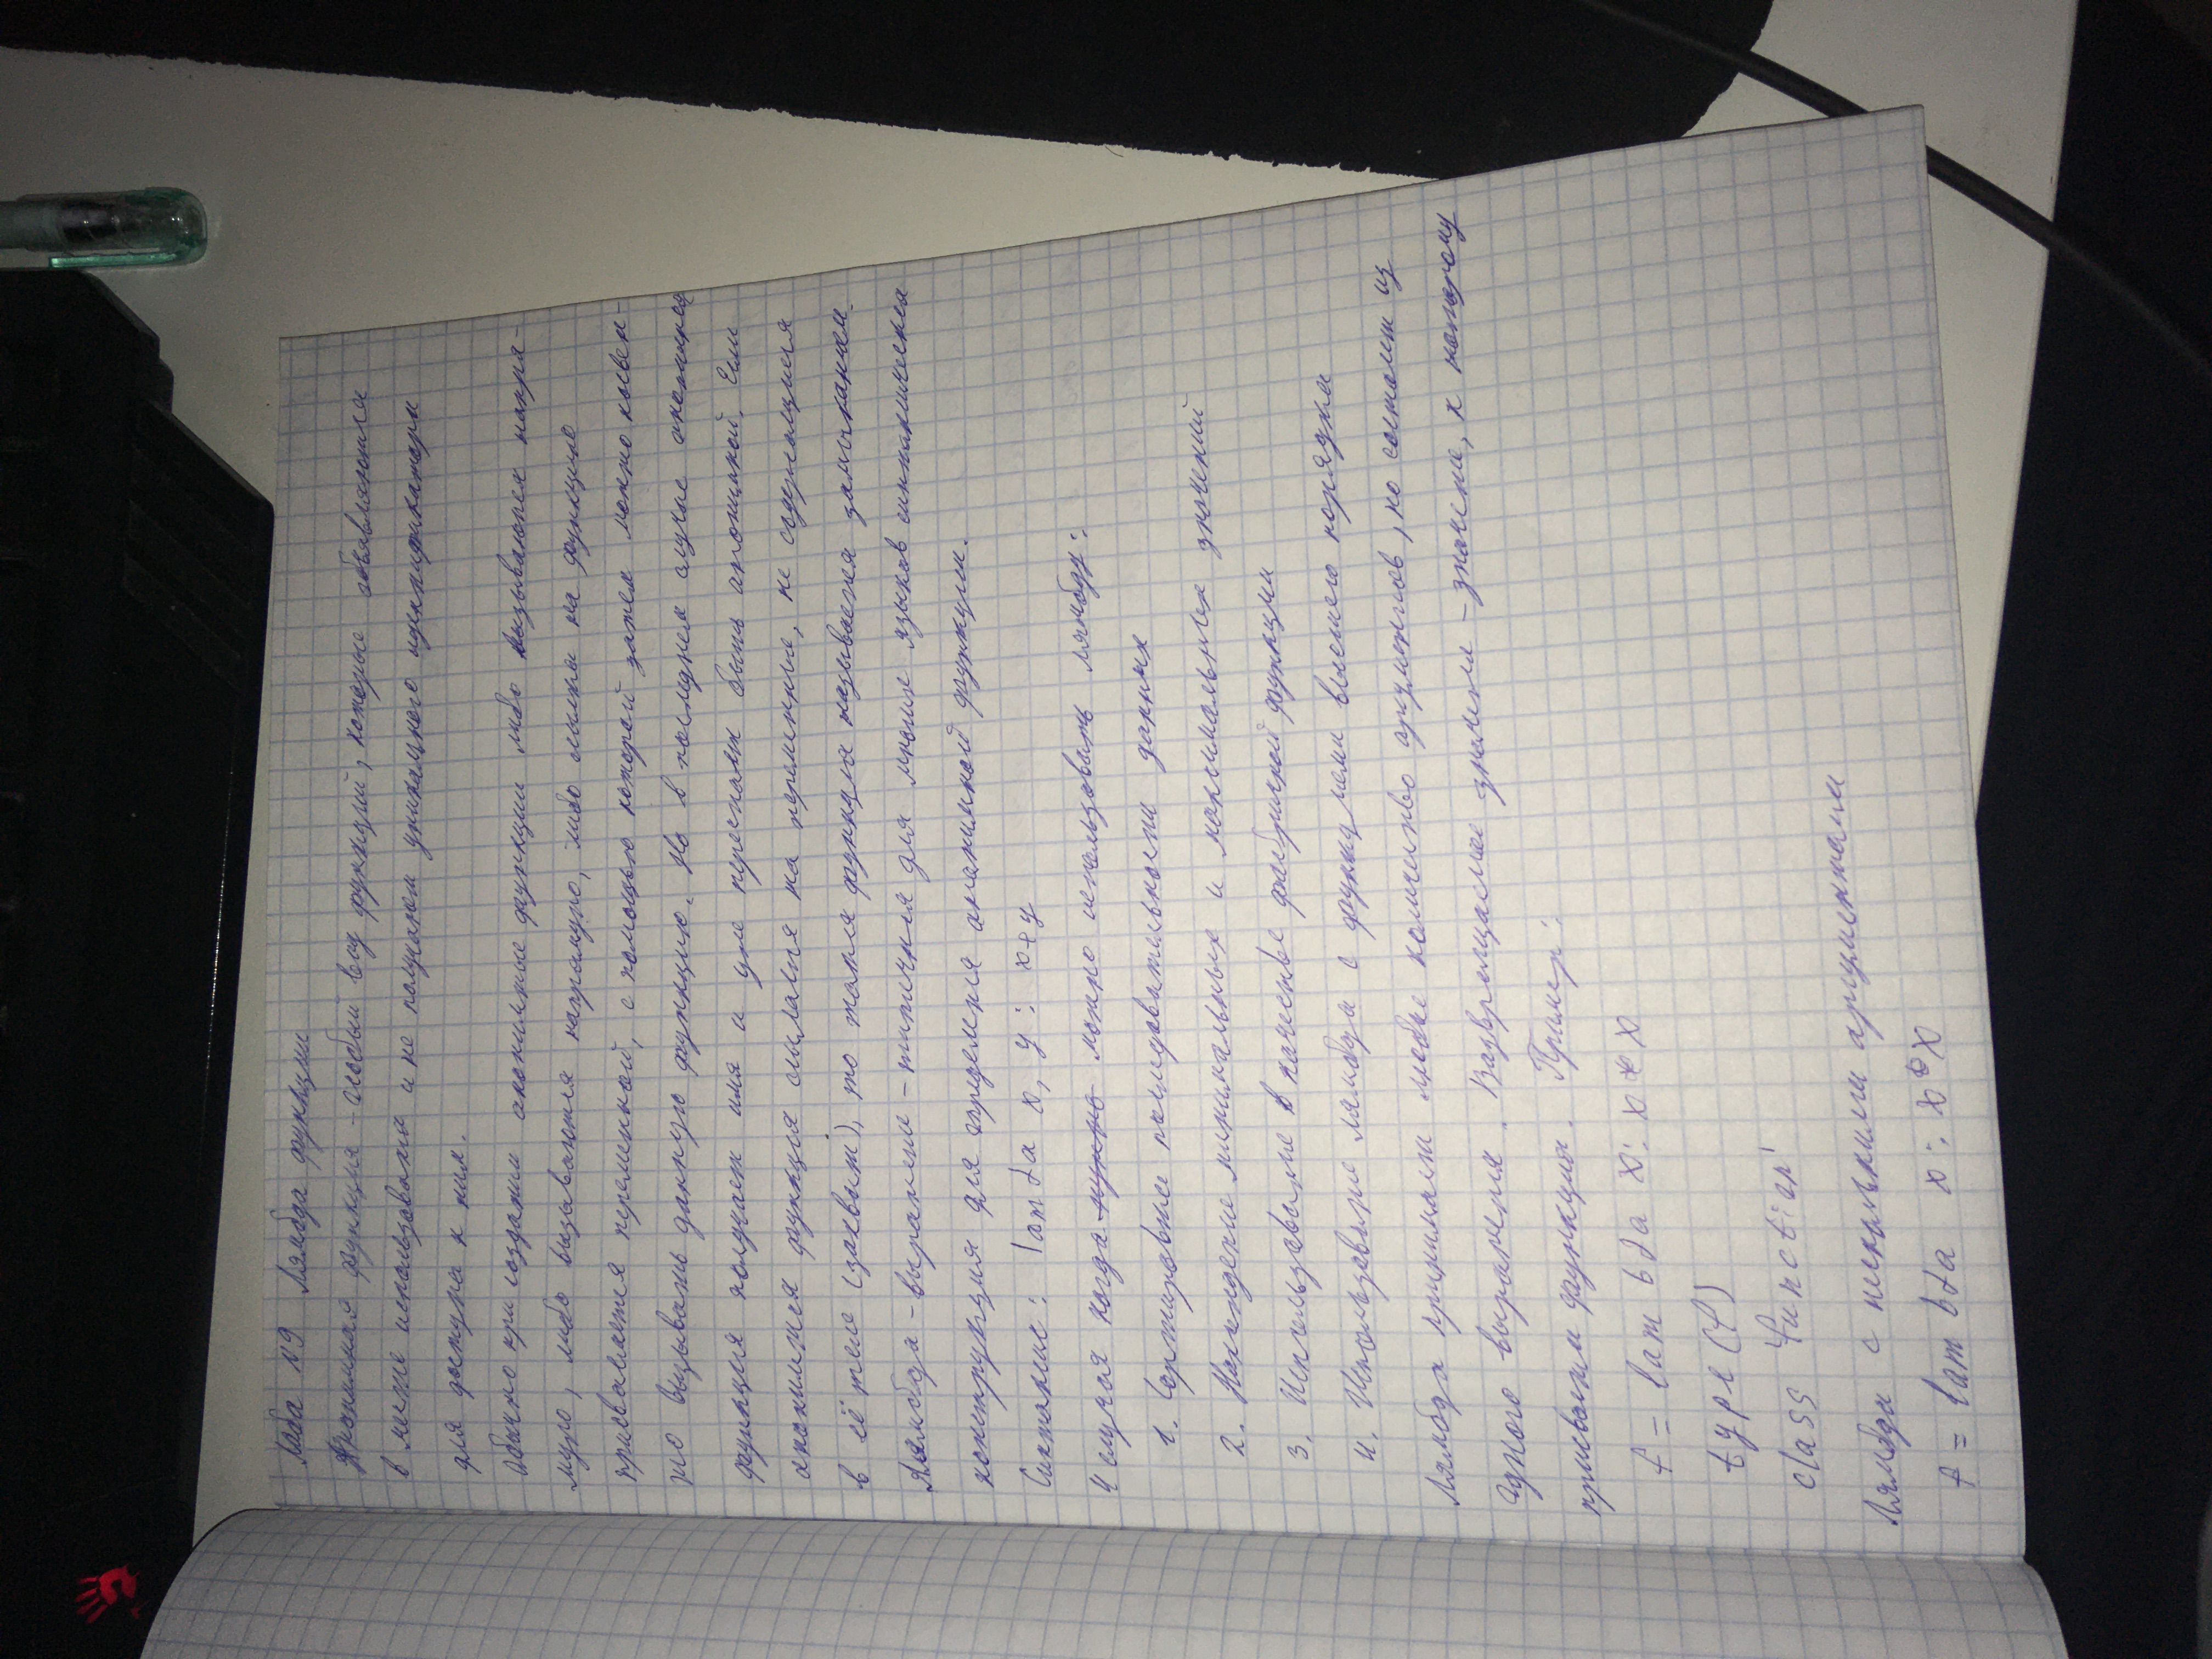 Лаба №9 Лямбда функции
Анонимная функция - особый вид функций, которые объявляются
в месте использования и не получают уникального идентификатора
для доступа к ним.
Обычно при создании анонимные функции либо вызываются напря-
мую, либо вызываются напрямую, либо ссылка на функцию
присваивается переменной, с помощью которой затем можно косвен-
но вызывать данную функцию. Но в последнем случае анонимная
функция получает имя и уже перестаёт быть анонимной. Если
анонимная функция ссылается на переменные, не содержащиеся
в её теле (захват), то такая функция называется замыканием.
Лямбда-выражение - типичная для многих языков синтаксическая
конструкция для определения анонимной функции.
Синтаксис: lamda x, y: x+y
4 случая когда нужно можно использовать лямбду:
1. Сортировка последовательности данных
2. Нахождение минимальных и максимальных значений
3. Использование в качестве фабричной функции
4. Использование лямбда с функциями высшего порядка
Лямбда принимает любое количество аргументов, но состоит из
одного выражения. Возвращаемое значение - значение, к которому
присвоена функция. Пример:
f = lambda x: x*x
type(f)
class 'function'
Лямбда с несколькими аргументами
f = lambda x: x*x